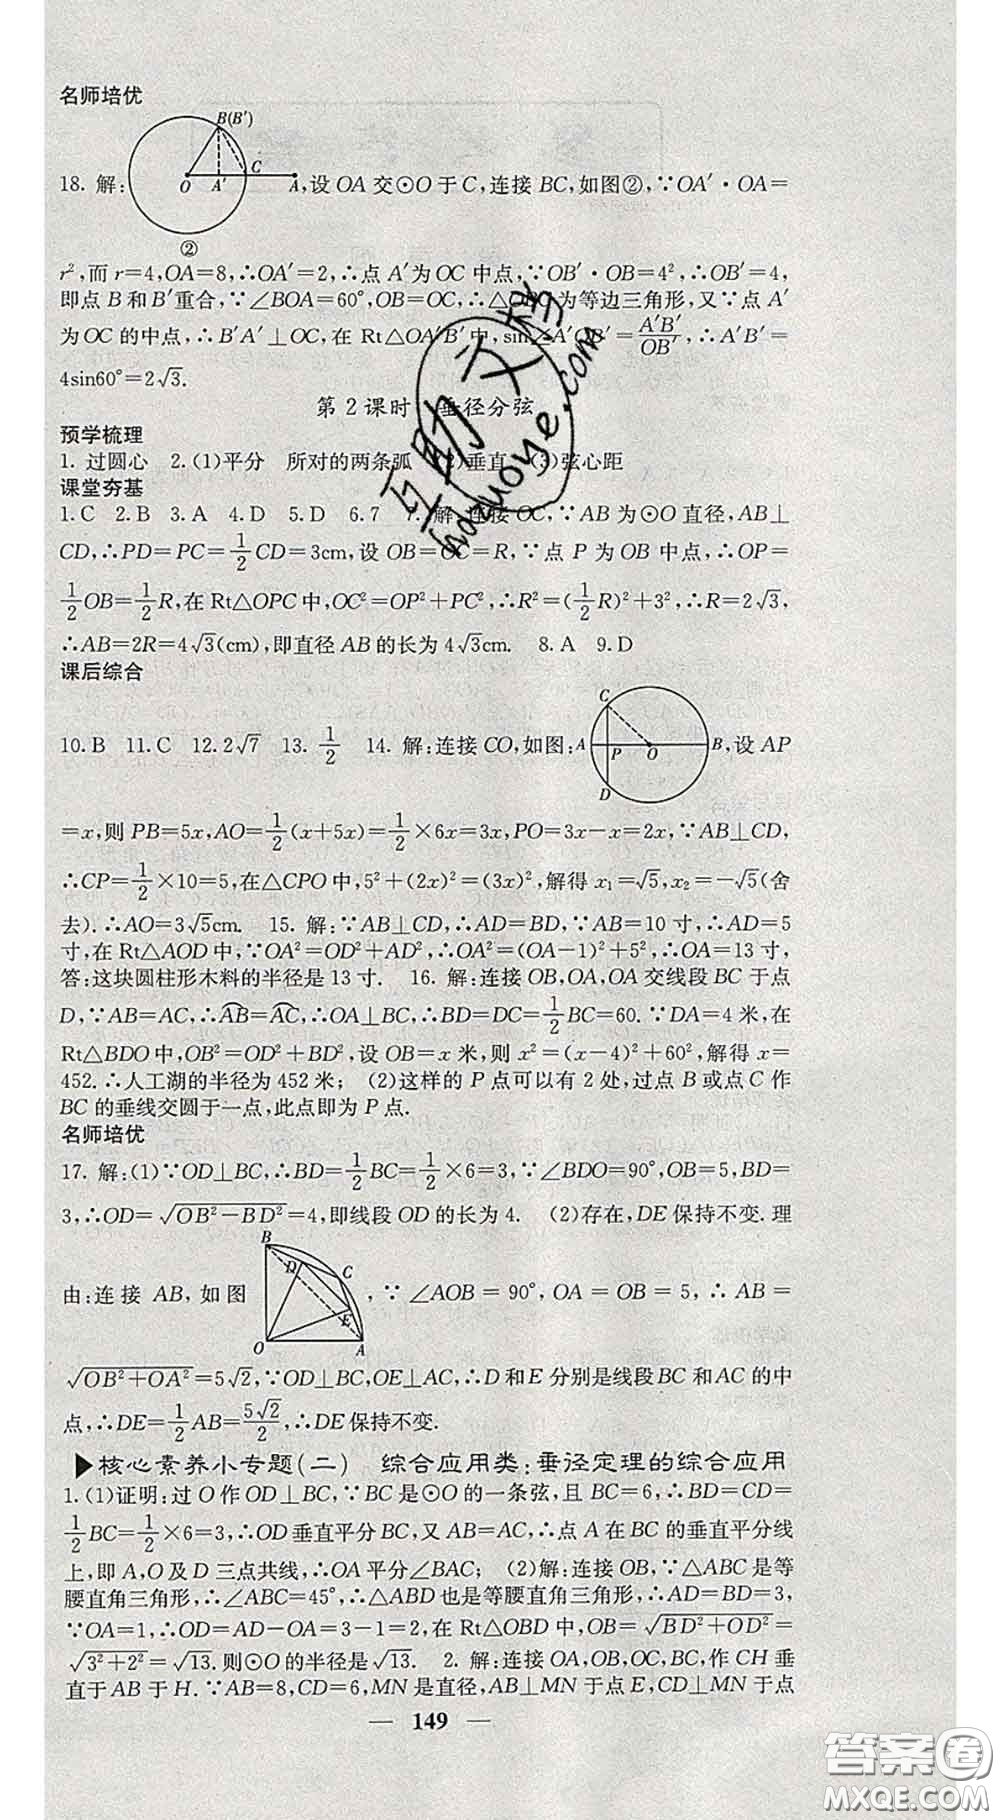 名师培优
B(B′)
C
O A′ A
18. 解: ,设 OA 交⊙O 于 C,连接 BC,如图②,∵OA′·OA=
②
r²,而 r=4,OA=8,∴OA′=2,∴点 A′为 OC 中点,∵OB′·OB=4²,∴OB′=4,
即点 B 和 B′重合,∵∠BOA=60°,OB=OC,∴△OBC 为等边三角形,又∵点 A′
为OC的中点,∴B′A′⊥OC,在 Rt△OA′B′中,sin∠A′OB′=A′B′/OB′,∴A′B′=
4sin60°=2√3.
第2课时 垂径分弦
预学梳理
1. 过圆心 2.(1)平分 所对的两条弧 (2)垂直 (3)弦心距
课堂夯基
1.C 2.B 3.A 4.D 5.D 6.7 7. 解:连接OC,∵AB为⊙O直径,AB⊥
CD,∴PD=PC=1/2CD=3cm,设 OB=OC=R,∵点 P 为 OB 中点,∴OP=
1/2OB=1/2R,在Rt△OPC中,OC²=OP²+PC²,∴R²=(1/2R)²+3²,∴R=2√3,
∴AB=2R=4√3(cm),即直径 AB 的长为 4√3cm. 8.A 9.D
课后综合
10.B 11.C 12.2√7 13.1/2 14. 解:连接CO,如图: C A P O B D ,设 AP
=x,则 PB=5x,AO=1/2(x+5x)=1/2×6x=3x,PO=3x-x=2x,∵AB⊥CD,
∴CP=1/2×10=5,在△CPO中,5²+(2x)²=(3x)²,解得 x₁=√5,x₂=-√5(舍
去).∴AO=3√5cm. 15. 解:∵AB⊥CD,∴AD=BD,∵AB=10 寸,∴AD=5
寸,在Rt△AOD中,∵OA²=OD²+AD²,∴OA²=(OA-1)²+5²,∴OA=13 寸,
答:这块圆柱形木料的半径是 13 寸. 16. 解:连接OB,OA,OA交线段 BC 于点
D,∵AB=AC,∴AB⌒=AC⌒,∴OA⊥BC,∴BD=DC=1/2BC=60.∵DA=4米,在
Rt△BDO中,OB²=OD²+BD²,设 OB=x 米,则 x²=(x-4)²+60²,解得 x=
452.∴人工湖的半径为 452 米; (2)这样的 P 点可以有 2 处,过点 B 或点 C 作
BC 的垂线交圆于一点,此点即为 P 点.
名师培优
17. 解:(1)∵OD⊥BC,∴BD=1/2BC=1/2×6=3,∵∠BDO=90°,OB=5,BD=
3,∴OD=√(OB²-BD²)=4,即线段 OD 的长为 4. (2)存在,DE保持不变.理
由:连接 AB,如图 B D C E O A ,∵∠AOB=90°,OA=OB=5,∴AB=
√(OB²+OA²)=5√2,∵OD⊥BC,OE⊥AC,∴D和E分别是线段BC和AC的中
点,∴DE=1/2AB=5√2/2,∴DE保持不变.
▶核心素养小专题(二) 综合应用类:垂径定理的综合应用
1.(1)证明:过O作OD⊥BC,∵BC是⊙O的一条弦,且BC=6,∴BD=CD=
1/2BC=1/2×6=3,∴OD垂直平分BC,又AB=AC,∴点A在BC的垂直平分线
上,即 A,O 及 D 三点共线,∴OA平分∠BAC; (2)解:连接OB,∵△ABC是等
腰直角三角形,∴∠ABC=45°,∴△ABD也是等腰直角三角形,∴AD=BD=3,
∵OA=1,∴OD=AD-OA=3-1=2,在 Rt△OBD 中,OB=√(BD²+OD²)=
√(3²+2²)=√13.则⊙O的半径是√13. 2. 解:连接OA,OB,OC,BC,作CH垂
直于AB于H.∵AB=8,CD=6,MN是直径,AB⊥MN于点E,CD⊥MN于点
— 149 —
互助文档
huzuoye.com
答案圈
MXQE.COM